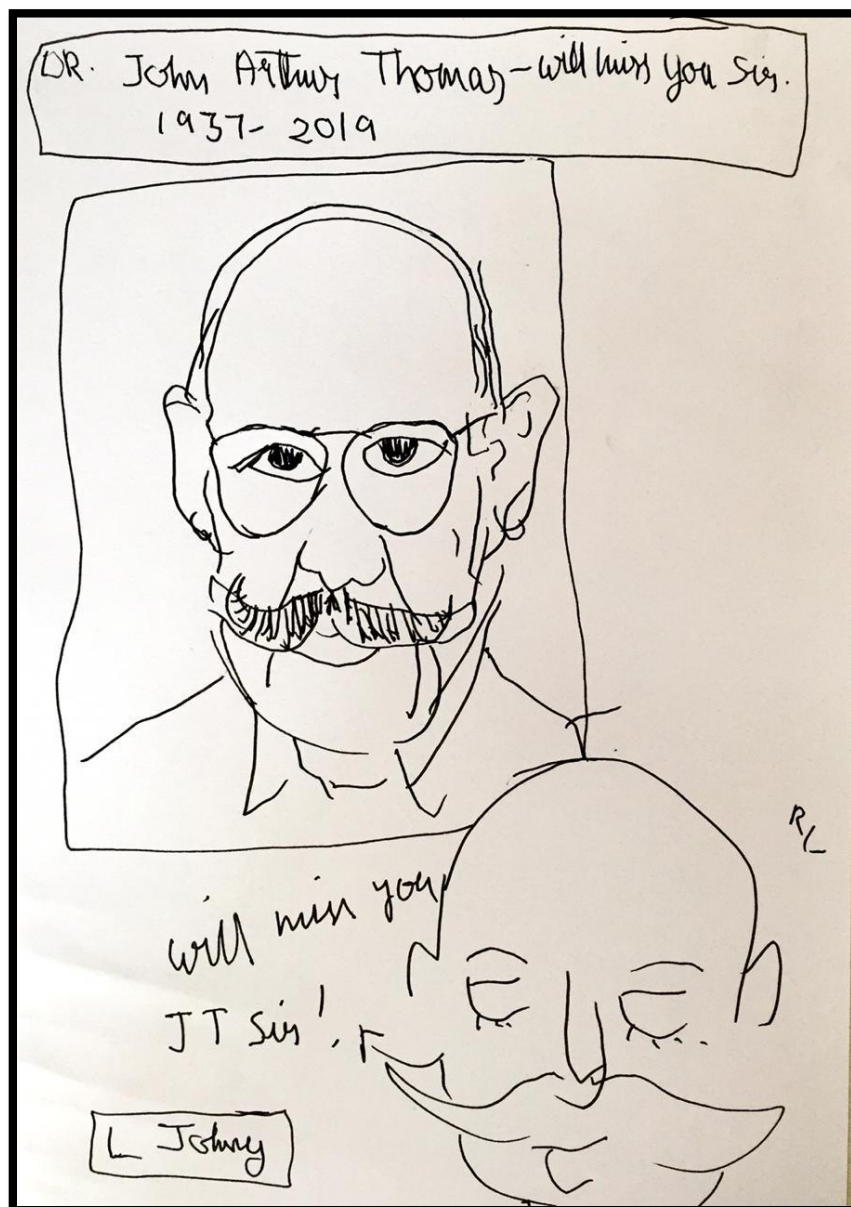 DR. John Arthur Thomas - will miss you Sir.
1937- 2019
RL
will miss you
JT Sir!
L Johny